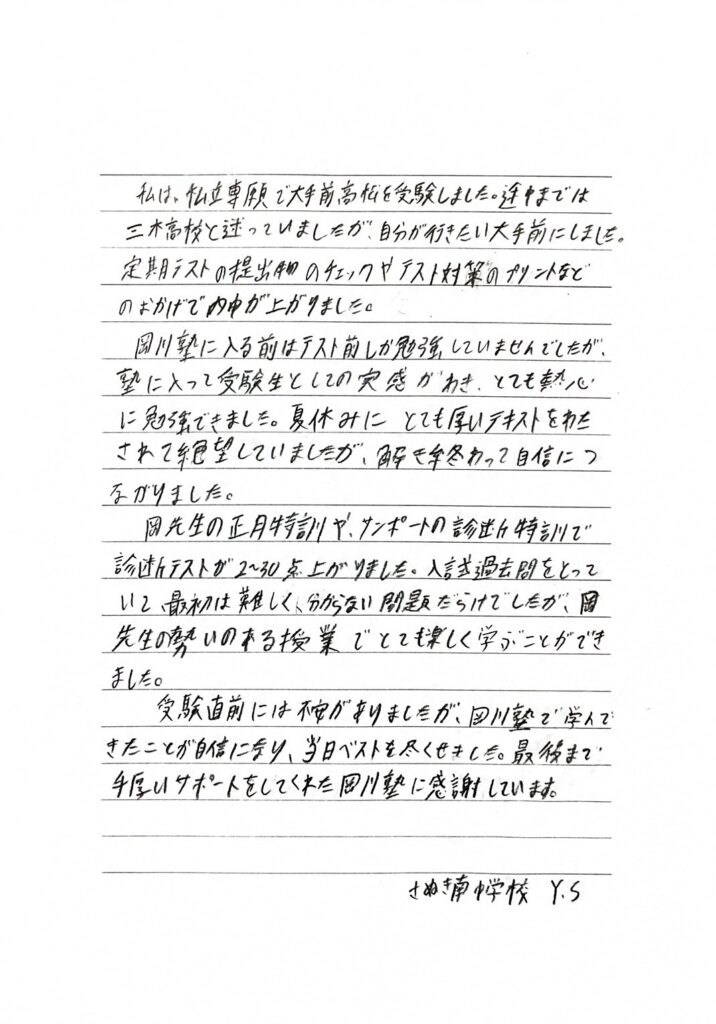 私は、私立専願で大手前高松を受験しました。途中までは
三木高校と迷っていましたが、自分が行きたい大手前にしました。
定期テストの提出物のチェックやテスト対策のプリントなど
のおかげで内申が上がりました。
岡川塾に入る前はテスト前しか勉強していませんでしたが、
塾に入って受験生としての実感がわき、とても熱心
に勉強できました。夏休みにとても厚いテキストをわた
されて絶望していましたが、解き終わって自信につ
ながりました。
岡先生の正月特訓や、サンポートの診断特訓で
診断テストが2~30点上がりました。入試過去問をとって
いて最初は難しく、分からない問題だらけでしたが、岡
先生の勢いのある授業でとても楽しく学ぶことができ
ました。
受験直前には不安がありましたが、岡川塾で学んで
きたことが自信になり、当日ベストを尽くせました。最後まで
手厚いサポートをしてくれた岡川塾に感謝しています。
さぬき南中学校 Y.S